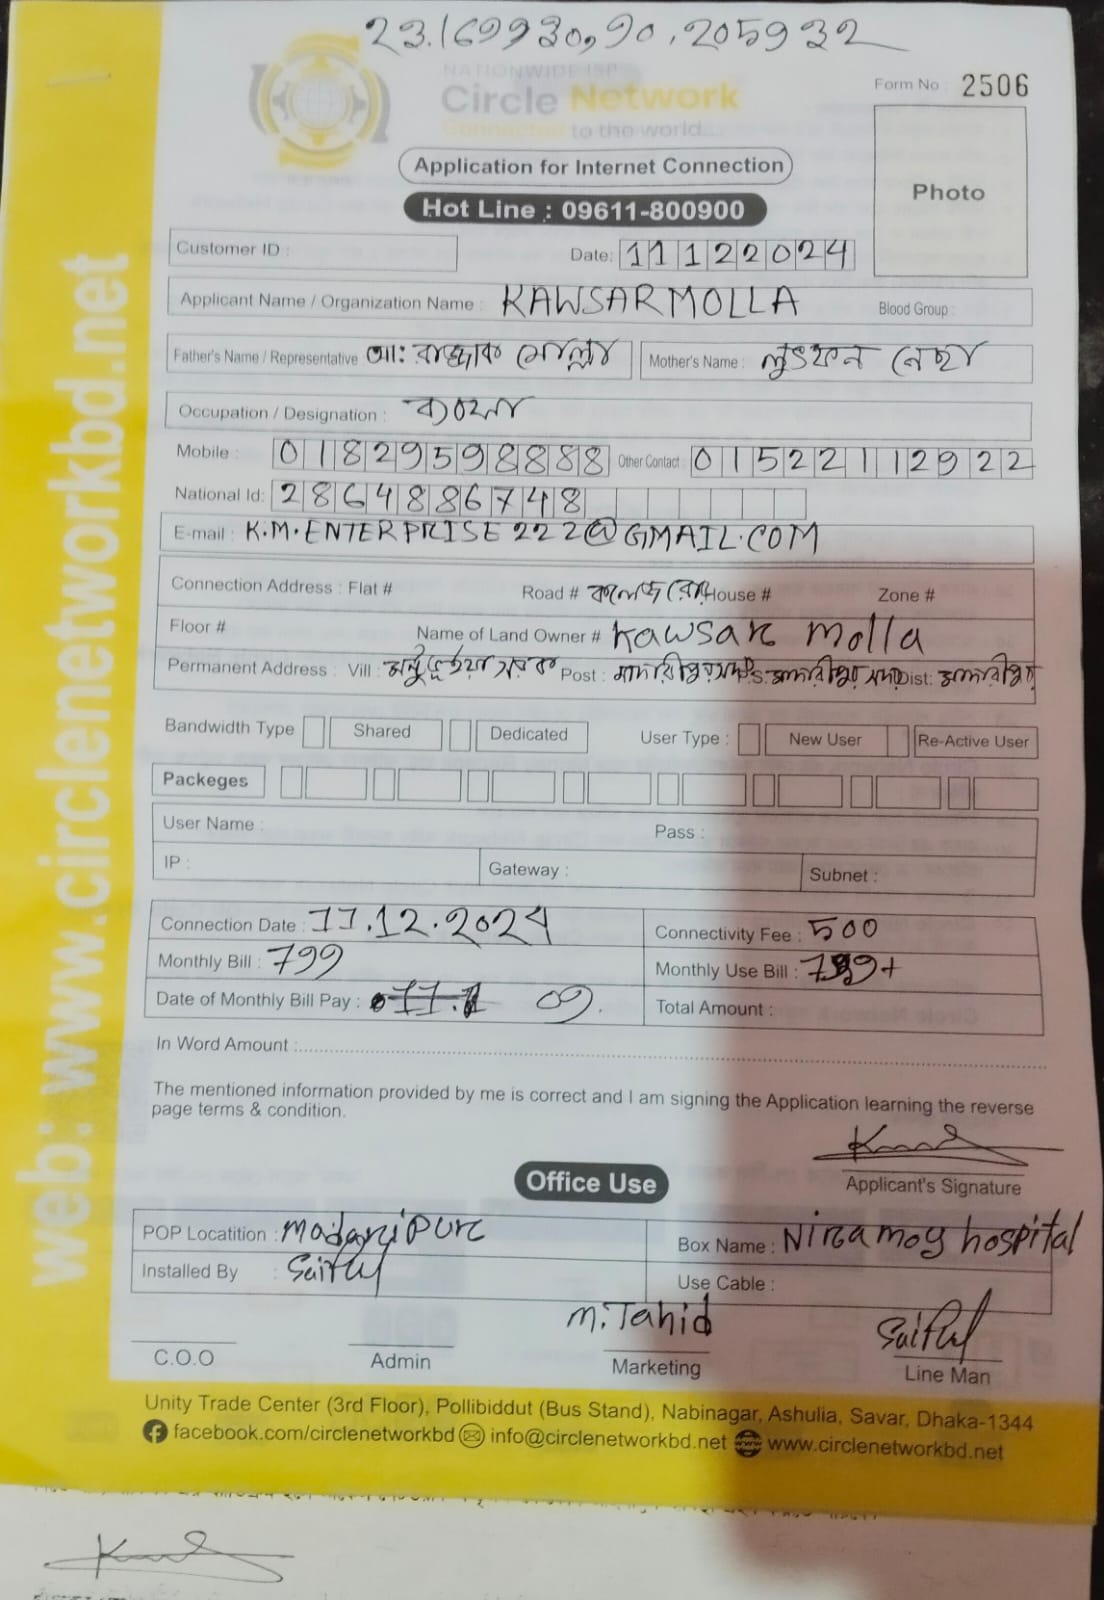 23.169930,90.205932
NATIONWIDE ISP
Circle Network
Connected to the world
Form No : 2506
Photo
Application for Internet Connection
Hot Line : 09611-800900
Customer ID :
Date: 11122024
Applicant Name / Organization Name : KAWSAR MOLLA Blood Group :
Father's Name / Representative আ: রাজ্জাক মোল্লা Mother's Name : লুৎফন নেছা
Occupation / Designation :
Mobile : 01829598888 Other Contact : 01522112922
National Id: 2864886748
E-mail : K.M.ENTERPRISE222@GMAIL.COM
Connection Address : Flat # Road # কলেজ রোড House # Zone #
Floor # Name of Land Owner # Kawsar Molla
Permanent Address : Vill : Post : মাদারীপুর সদর P.S: মাদারীপুর সদর Dist: মাদারীপুর
Bandwidth Type Shared Dedicated User Type : New User Re-Active User
Packeges
User Name : Pass :
IP : Gateway : Subnet :
Connection Date : 11.12.2024 Connectivity Fee : 500
Monthly Bill : 799 Monthly Use Bill : 799+
Date of Monthly Bill Pay : 09. Total Amount :
In Word Amount :
The mentioned information provided by me is correct and I am signing the Application learning the reverse
page terms & condition.
Applicant's Signature
Office Use
POP Locatition : Madaripur Box Name : Niramoy hospital
Installed By : Saiful Use Cable :
M. Tahid Saiful
C.O.O Admin Marketing Line Man
Unity Trade Center (3rd Floor), Pollibiddut (Bus Stand), Nabinagar, Ashulia, Savar, Dhaka-1344
facebook.com/circlenetworkbd info@circlenetworkbd.net www.circlenetworkbd.net
web: www.circlenetworkbd.net